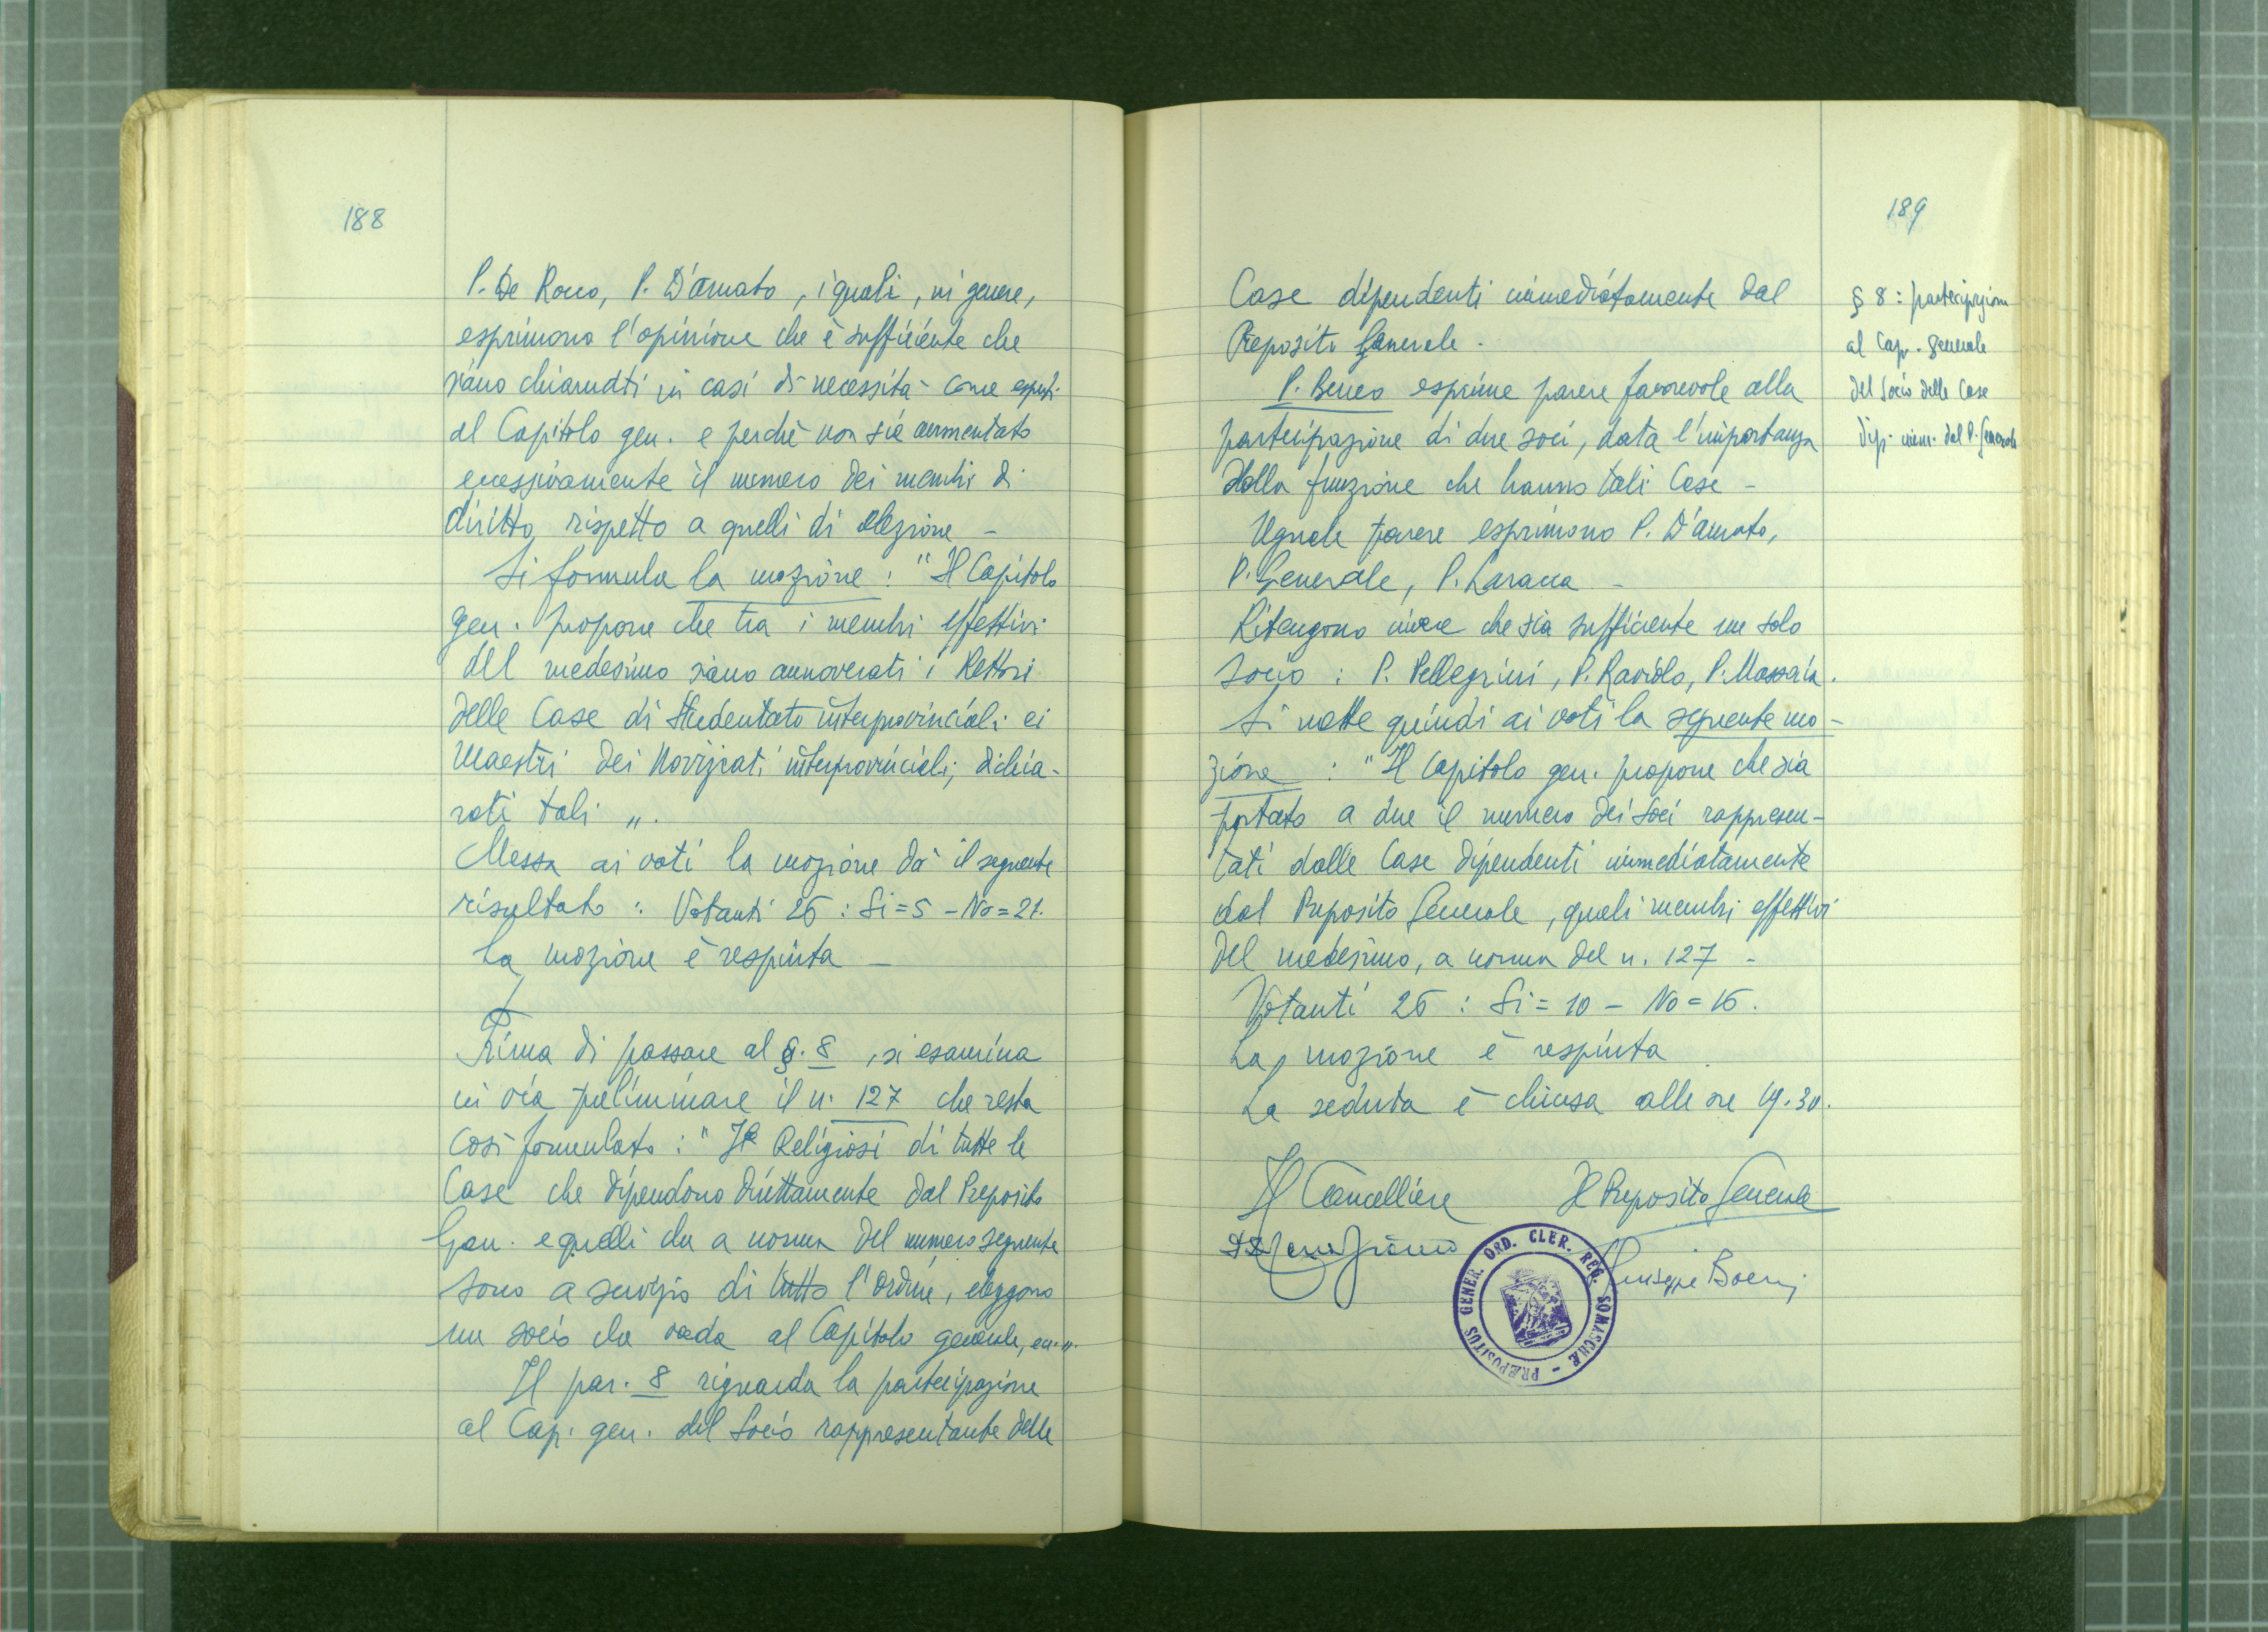 188
P. De Rocco, P. D'Amato, i quali, in genere,
esprimono l'opinione che è sufficiente che
siano chiamati in casi di necessità come esperti
al Capitolo gen. e perchè non sia aumentato
eccessivamente il numero dei membri di
diritto rispetto a quelli di elezione -
Si formula la mozione : "Il Capitolo
gen. propone che tra i membri effettivi
del medesimo siano annoverati i Rettori
delle Case di Studentato interprovinciali e i
Maestri dei Noviziati interprovinciali, dichia-
rati tali ".
Messa ai voti la mozione dà il seguente
risultato : Votanti 26 : Si = 5 - No = 21.
La mozione è respinta -
Prima di passare al §. 8, si esamina
in via preliminare il n. 127 che resta
così formulato : " I Religiosi di tutte le
Case che dipendono direttamente dal Preposito
Gen. e quelli che a norma del numero seguente
sono a servizio di tutto l'Ordine, eleggono
un socio che vada al Capitolo generale, ecc. ".
Il par. 8 riguarda la partecipazione
al Cap. gen. del Socio rappresentante delle
189
Case dipendenti immediatamente dal
Preposito Generale.
P. Beneo esprime parere favorevole alla
partecipazione di due soci, data l'importanza
della funzione che hanno tali Case -
Uguale parere esprimono P. D'Amato,
P. Generale, P. Laracca -
Ritengono invece che sia sufficiente un solo
socio : P. Pellegrini, P. Raviolo, P. Massaia.
Si mette quindi ai voti la seguente mo-
zione : "Il Capitolo gen. propone che sia
portato a due il numero dei Soci rappresen-
tati dalle Case dipendenti immediatamente
dal Preposito Generale, quali membri effettivi
del medesimo, a norma del n. 127 -
Votanti 26 : Si = 10 - No = 16.
La mozione è respinta
La seduta è chiusa alle ore 19.30.
Il Cancelliere Il Preposito Generale
Giuseppe Boeris
PRÆPOSITUS GENER. ORD. CLER. REG. SOMASCHÆ -
§ 8 : partecipazione
al Cap. generale
del Socio delle Case
dip. imm. dal P. Generale